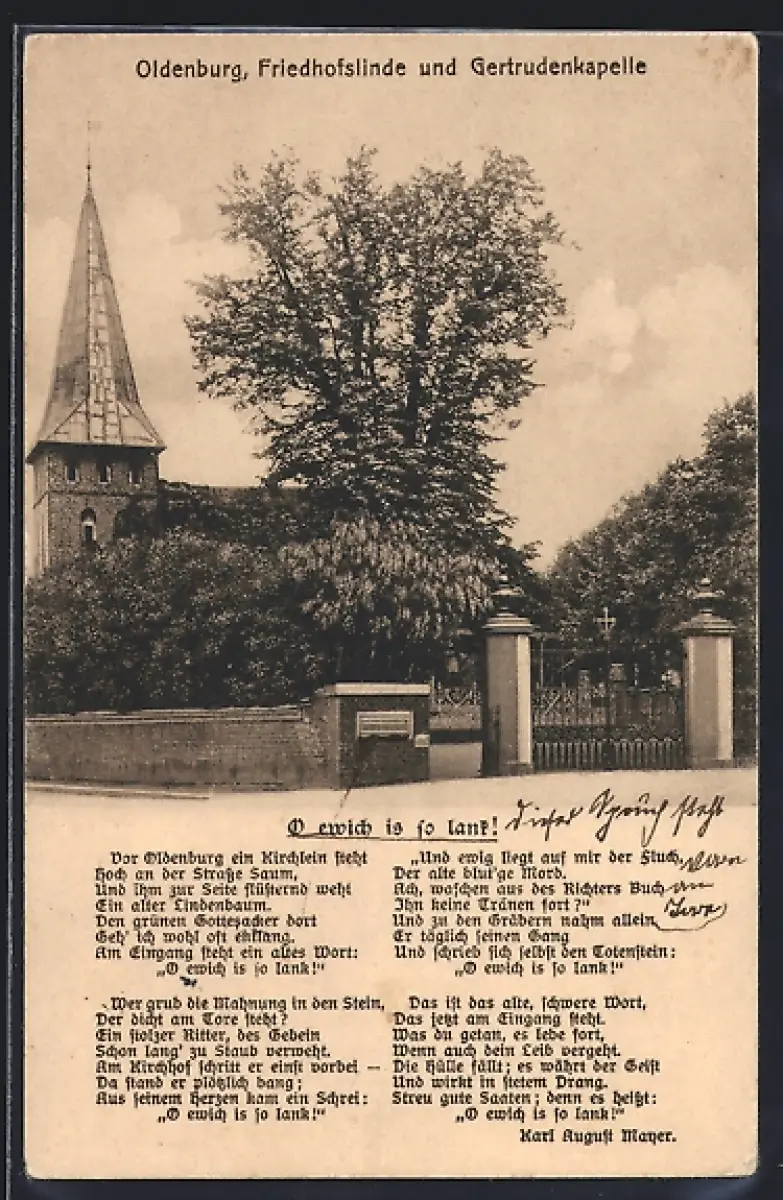 Oldenburg, Friedhofslinde und Gertrudenkapelle
O ewich is so lank!
dieser Spruch steht
vorn
an
Vor Oldenburg ein Kirchlein steht
Hoch an der Straße Saum,
Und ihm zur Seite flüsternd weht
Ein alter Lindenbaum.
Den grünen Gottesacker dort
Geh' ich wohl oft entlang.
Am Eingang steht ein altes Wort:
„O ewich is so lank!"
Wer grub die Mahnung in den Stein,
Der dicht am Tore steht?
Ein stolzer Ritter, des Gebein
Schon lang' zu Staub verweht.
Am Kirchhof schritt er einst vorbei —
Da stand er plötzlich bang;
Aus seinem Herzen kam ein Schrei:
„O ewich is so lank!"
„Und ewig liegt auf mir der Fluch,
Der alte blut'ge Mord.
Ach, waschen aus des Richters Buch
Ihn keine Tränen fort?"
Und zu den Gräbern nahm allein
Er täglich seinen Gang
Und schrieb sich selbst den Totenstein:
„O ewich is so lank!"
Das ist das alte, schwere Wort,
Das jetzt am Eingang steht.
Was du getan, es lebe fort,
Wenn auch dein Leib vergeht.
Die Hülle fällt; es währt der Geist
Und wirkt in stetem Drang.
Streu gute Saaten; denn es heißt:
„O ewich is so lank!"
Karl August Mayer.